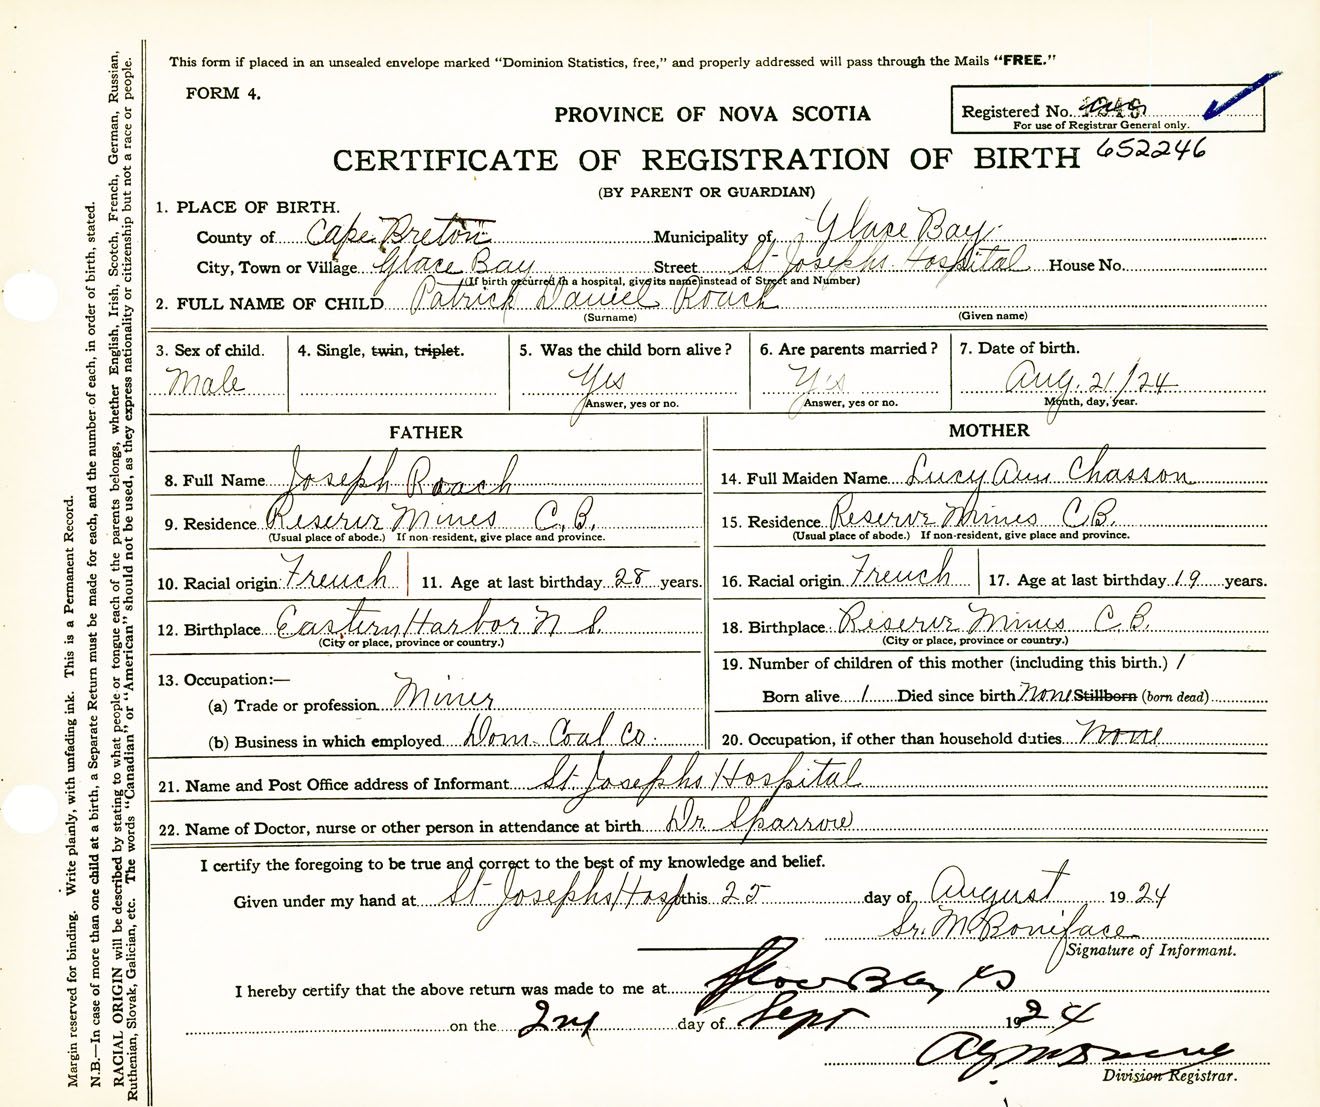 This form if placed in an unsealed envelope marked "Dominion Statistics, free," and properly addressed will pass through the Mails "FREE."
FORM 4.
PROVINCE OF NOVA SCOTIA
Registered No.
For use of Registrar General only.
CERTIFICATE OF REGISTRATION OF BIRTH 652246
(BY PARENT OR GUARDIAN)
1. PLACE OF BIRTH.
County of Cape Breton Municipality of Glace Bay
City, Town or Village Glace Bay Street St Josephs Hospital House No.
(If birth occurred in a hospital, give its name instead of Street and Number)
2. FULL NAME OF CHILD Patrick Daniel Roach
(Surname) (Given name)
3. Sex of child. 4. Single, twin, triplet. 5. Was the child born alive? 6. Are parents married? 7. Date of birth.
Male Yes Yes Aug. 21/24
Answer, yes or no. Answer, yes or no. Month, day, year.
FATHER MOTHER
8. Full Name Joseph Roach 14. Full Maiden Name Lucy Ann Chasson
9. Residence Reserve Mines C.B. 15. Residence Reserve Mines CB.
(Usual place of abode.) If non-resident, give place and province. (Usual place of abode.) If non-resident, give place and province.
10. Racial origin French 11. Age at last birthday 28 years. 16. Racial origin French 17. Age at last birthday 19 years.
12. Birthplace Eastern Harbor N S. 18. Birthplace Reserve Mines C B.
(City or place, province or country.) (City or place, province or country.)
13. Occupation:— 19. Number of children of this mother (including this birth.) 1
(a) Trade or profession Miner Born alive 1 Died since birth None Stillborn (born dead)
(b) Business in which employed Dom. Coal Co. 20. Occupation, if other than household duties None
21. Name and Post Office address of Informant St Josephs Hospital
22. Name of Doctor, nurse or other person in attendance at birth Dr Sparrow
I certify the foregoing to be true and correct to the best of my knowledge and belief.
Given under my hand at St Josephs Hosp this 25 day of August 1924
Sr. M Boniface
Signature of Informant.
I hereby certify that the above return was made to me at Glace Bay
on the 2nd day of Sept 1924
Division Registrar.
Margin reserved for binding. Write plainly, with unfading ink. This is a Permanent Record.
N.B.—In case of more than one child at a birth, a Separate Return must be made for each, and the number of each, in order of birth, stated.
RACIAL ORIGIN will be described by stating to what people or tongue each of the parents belongs, whether English, Irish, Scotch, French, German, Russian,
Ruthenian, Slovak, Galician, etc. The words "Canadian" or "American" should not be used, as they express nationality or citizenship but not a race or people.